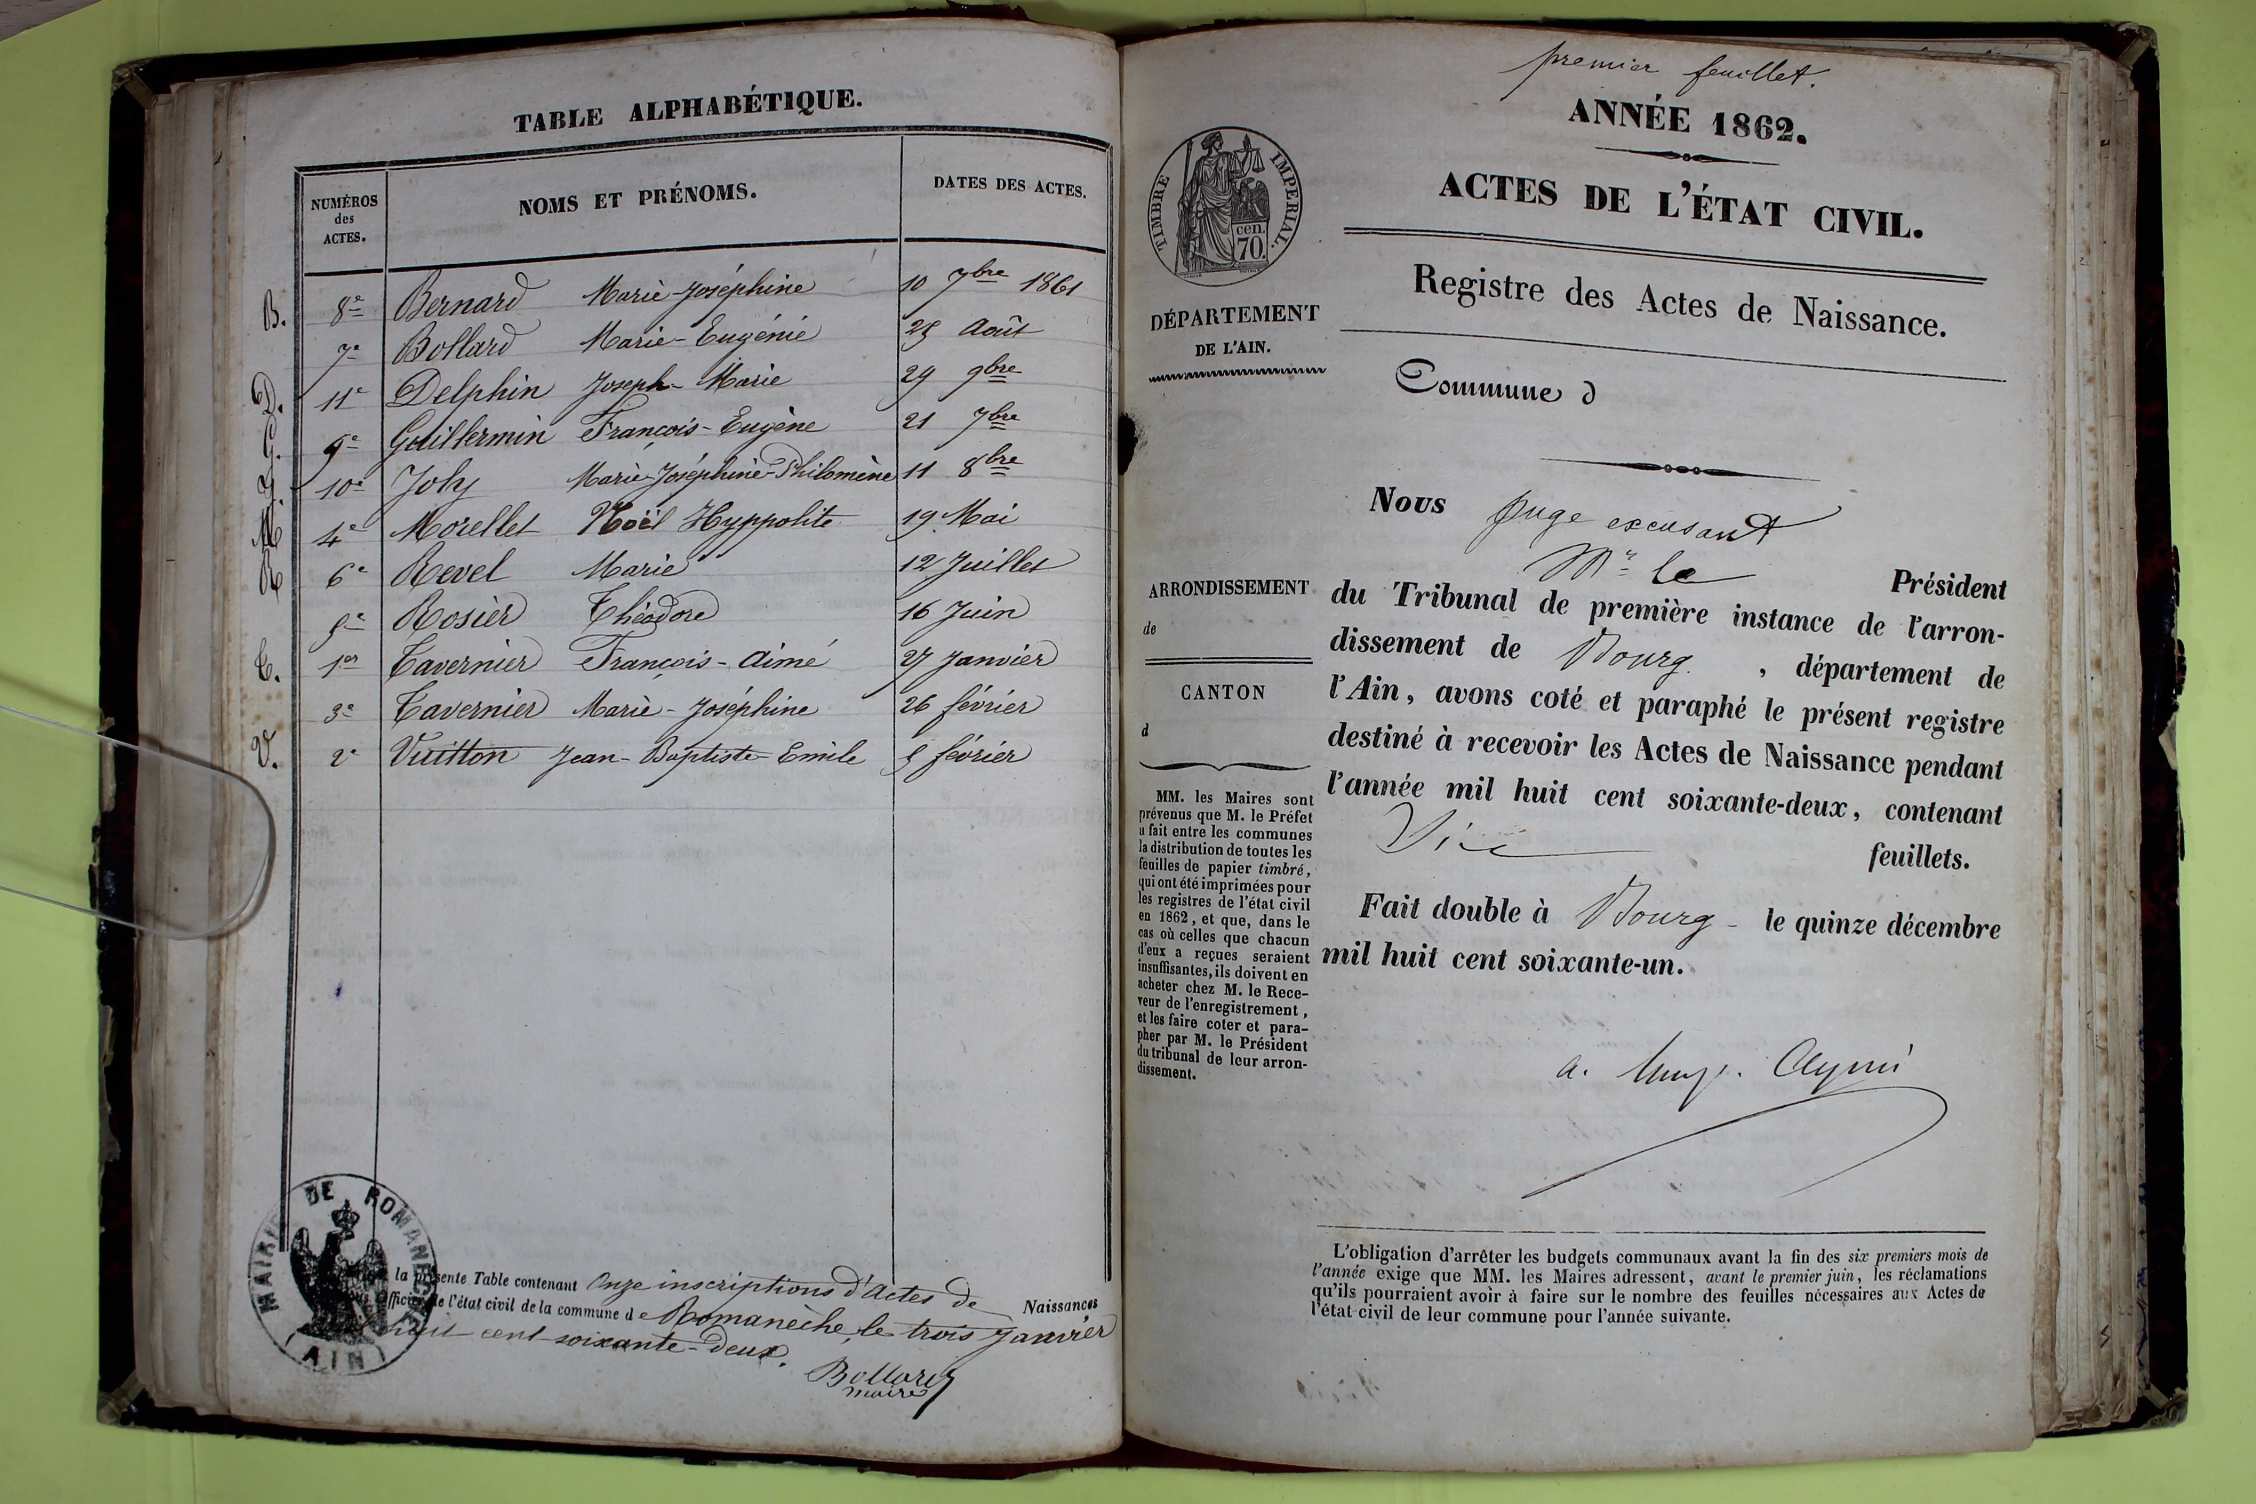 TABLE ALPHABÉTIQUE.
NUMÉROS des ACTES. NOMS ET PRÉNOMS. DATES DES ACTES.
B. 8e Bernard Marie-Joséphine 10 7bre 1861
7e Bollard Marie-Eugénie 25 Août
D. 11e Delphin Joseph-Marie 29 9bre
G. 9e Guillermin François-Eugène 21 7bre
J. 10e Joly Marie-Joséphine-Philomène 11 8bre
M. 4e Morellet Noël Hyppolite 19 Mai
R. 6e Revel Marie 12 Juillet
5e Rosier Théodore 16 Juin
T. 1er Tavernier François-Aimé 27 Janvier
3e Tavernier Marie-Joséphine 26 février
V. 2e Vuitton Jean-Baptiste-Emile 5 février
MAIRIE DE ROMANÈCHE
(AIN)
la présente Table contenant Onze inscriptions d'Actes de Naissances
Officier de l'état civil de la commune de Romanèche, le trois Janvier
huit cent soixante-deux.
Bollard
maire
premier feuillet.
ANNÉE 1862.
ACTES DE L'ÉTAT CIVIL.
TIMBRE IMPERIAL.
cen.
70.
Registre des Actes de Naissance.
DÉPARTEMENT
DE L'AIN.
Commune d
Nous Juge excusant
Mr le Président
du Tribunal de première instance de l'arron-
dissement de Bourg, département de
l'Ain, avons coté et paraphé le présent registre
destiné à recevoir les Actes de Naissance pendant
l'année mil huit cent soixante-deux, contenant
feuillets.
Fait double à Bourg le quinze décembre
mil huit cent soixante-un.
ARRONDISSEMENT
de
CANTON
d
MM. les Maires sont
prévenus que M. le Préfet
a fait entre les communes
la distribution de toutes les
feuilles de papier timbré,
qui ont été imprimées pour
les registres de l'état civil
en 1862, et que, dans le
cas où celles que chacun
d'eux a reçues seraient
insuffisantes, ils doivent en
acheter chez M. le Rece-
veur de l'enregistrement,
et les faire coter et para-
pher par M. le Président
du tribunal de leur arron-
dissement.
L'obligation d'arrêter les budgets communaux avant la fin des six premiers mois de
l'année exige que MM. les Maires adressent, avant le premier juin, les réclamations
qu'ils pourraient avoir à faire sur le nombre des feuilles nécessaires aux Actes de
l'état civil de leur commune pour l'année suivante.